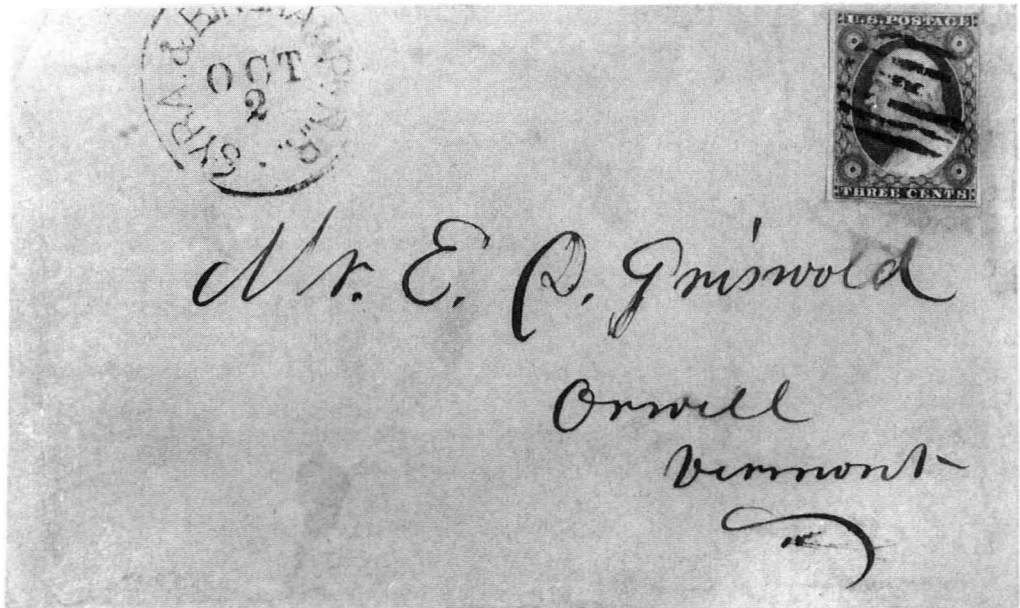 SYRA. & BINGHAMPTON R.R.
OCT
2
U.S. POSTAGE
THREE CENTS
Mr. E. P. Griswold
Orwell
Vermont